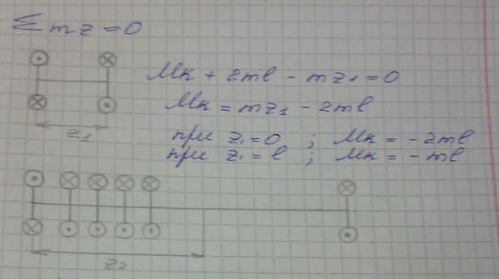 Σmz=0
Mк + 2ml - mz₁ = 0
Mк = mz₁ - 2ml
при z₁=0 ; Mк = -2ml
при z₁=l ; Mк = -ml
z₁
z₂